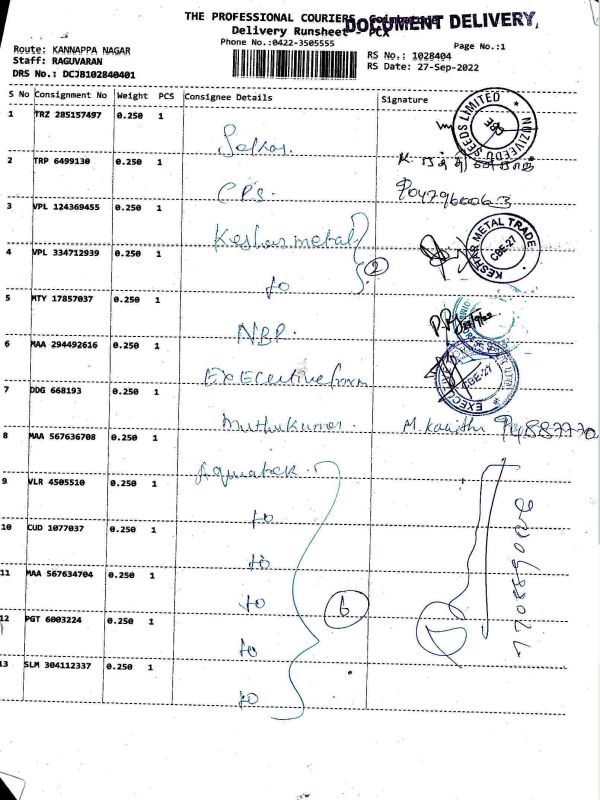 THE PROFESSIONAL COURIERS Coimbatore
DOCUMENT DELIVERY,
Delivery Runsheet - PCX
Phone No.:0422-3505555
Page No.:1
Route: KANNAPPA NAGAR
Staff: RAGUVARAN
DRS No.: DCJB102840401
RS No.: 1028404
RS Date: 27-Sep-2022
S No Consignment No Weight PCS Consignee Details Signature
1 TRZ 285157497 0.250 1
NUZIVEEDU SEEDS LIMITED
CBE
2 TRP 6499130 0.250 1 CPS.
3 VPL 124369455 0.250 1 Keshar metal
KESHAR METAL TRADE
CBE-27
4 VPL 334712939 0.250 1 to
2
5 MTY 17857037 0.250 1 NBP.
6 MAA 294492616 0.250 1
CBE-27
7 DDG 668193 0.250 1 Muthukumar.
8 MAA 567636708 0.250 1 Aquatek.
9 VLR 4505510 0.250 1 to
10 CUD 1077037 0.250 1 to
11 MAA 567634704 0.250 1 to
6
12 PGT 6003224 0.250 1 to
13 SLM 304112337 0.250 1 to